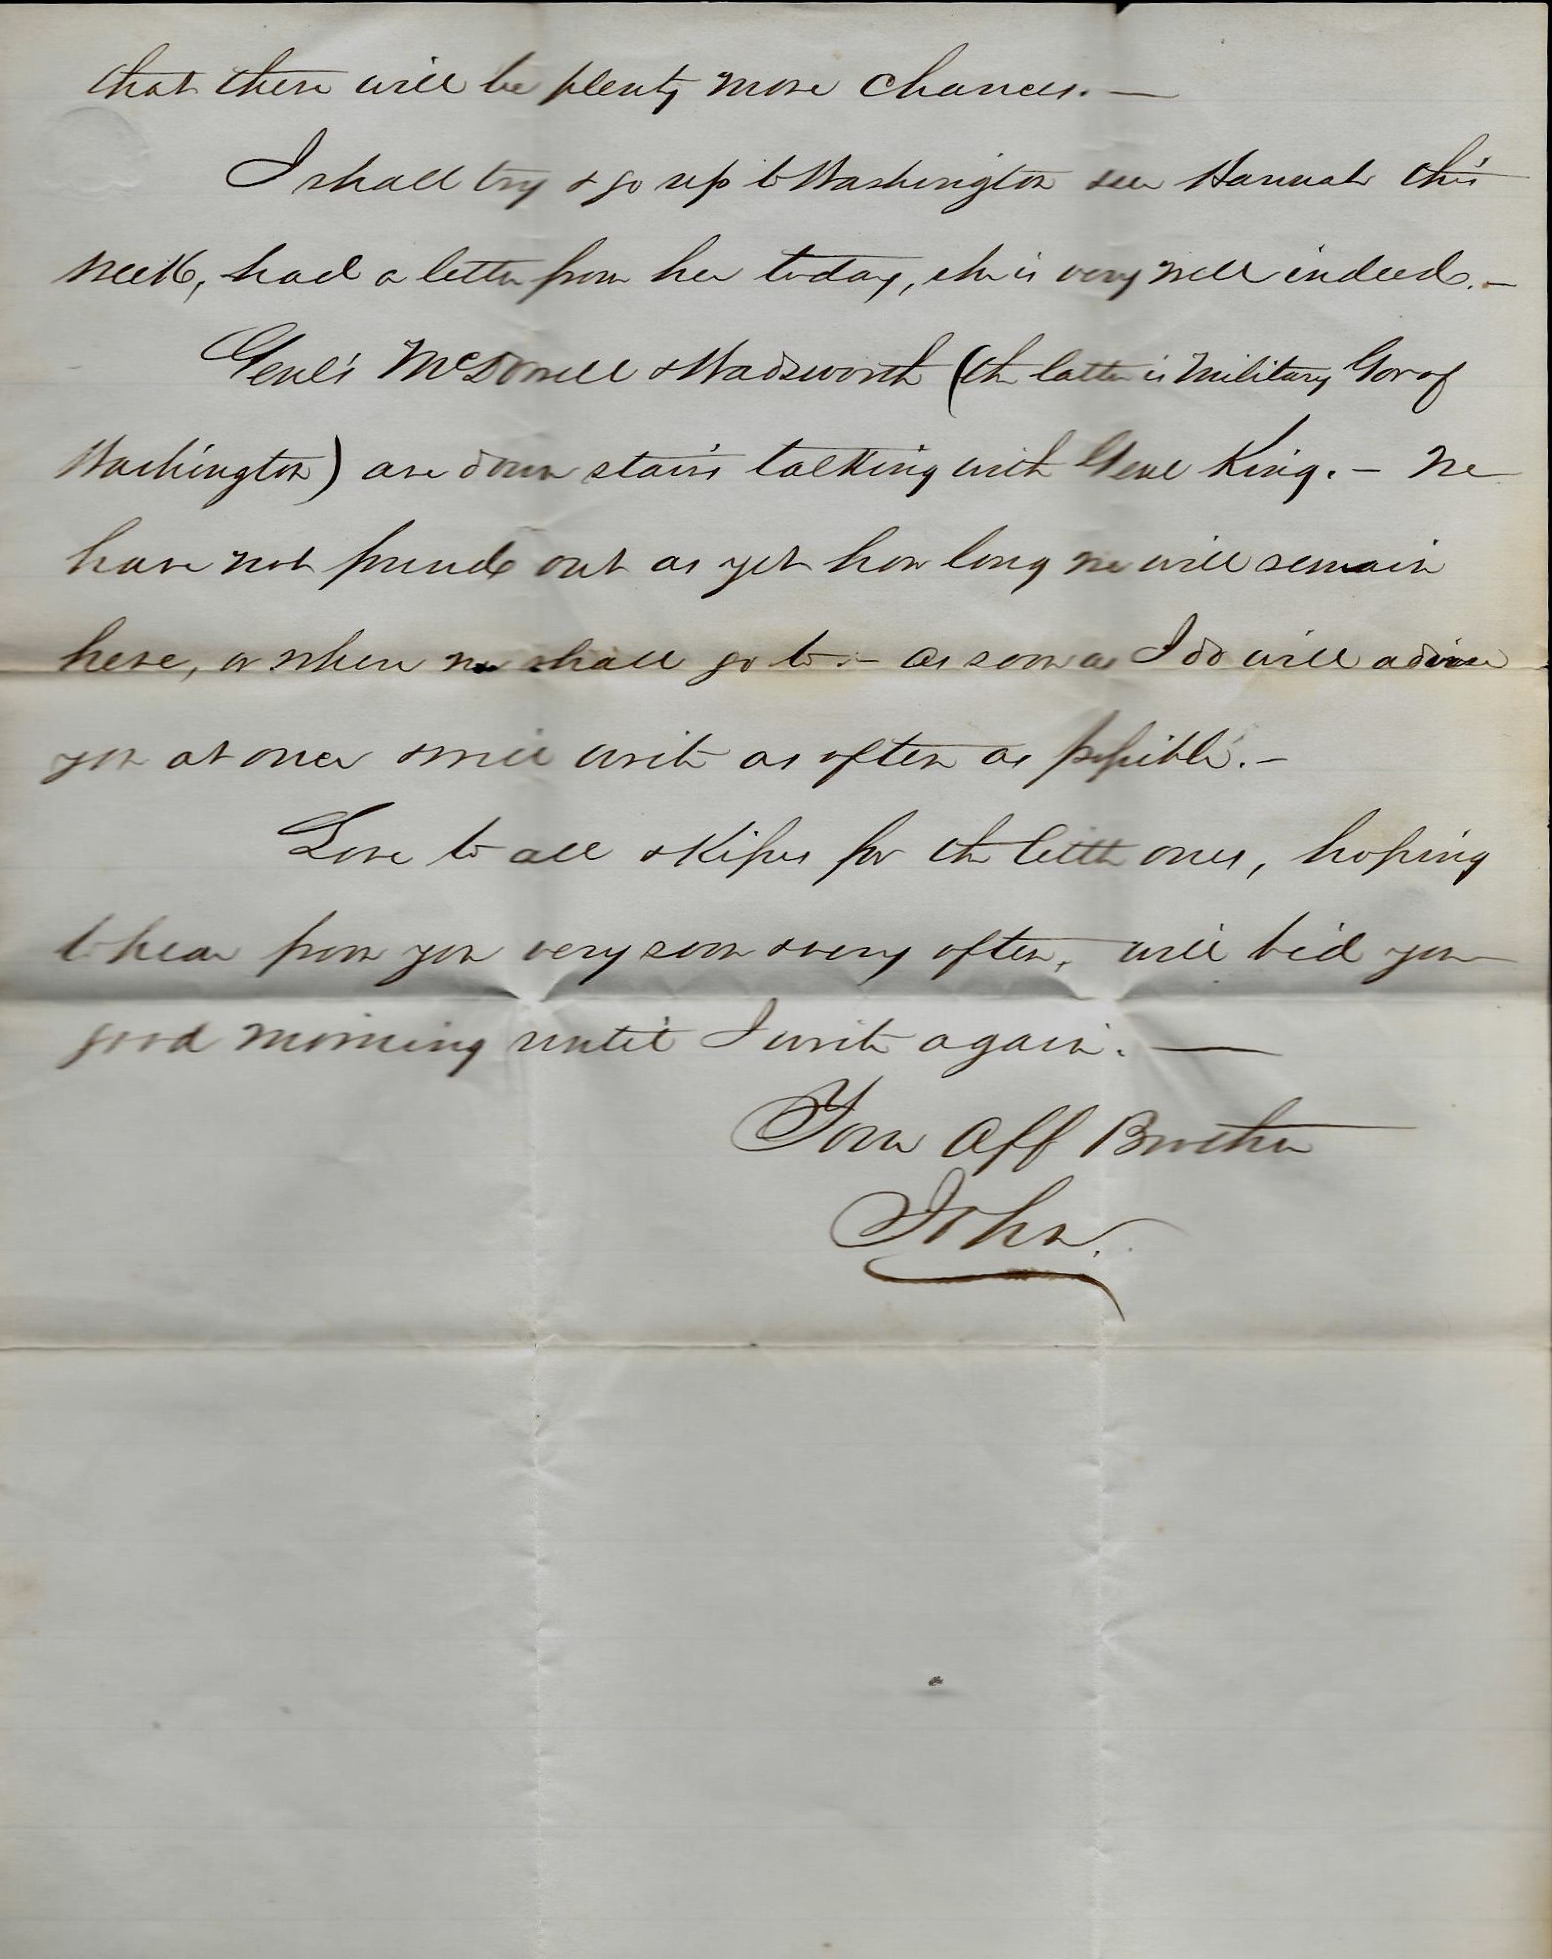 that there will be plenty more chances. —
I shall try & go up to Washington see Hannah this
week, had a letter from her today, she is very well indeed. —
Genl's McDowell & Wadsworth (the latter is Military Gov of
Washington) are down stairs talking with Genl King. — We
have not found out as yet how long we will remain
here, or where we shall go to. — as soon as I do will advise
you at once & will write as often as possible. —
Love to all & Kisses for the little ones, hoping
to hear from you very soon & very often, will bid you
good morning until I write again. —
Your Aff Brother
John.